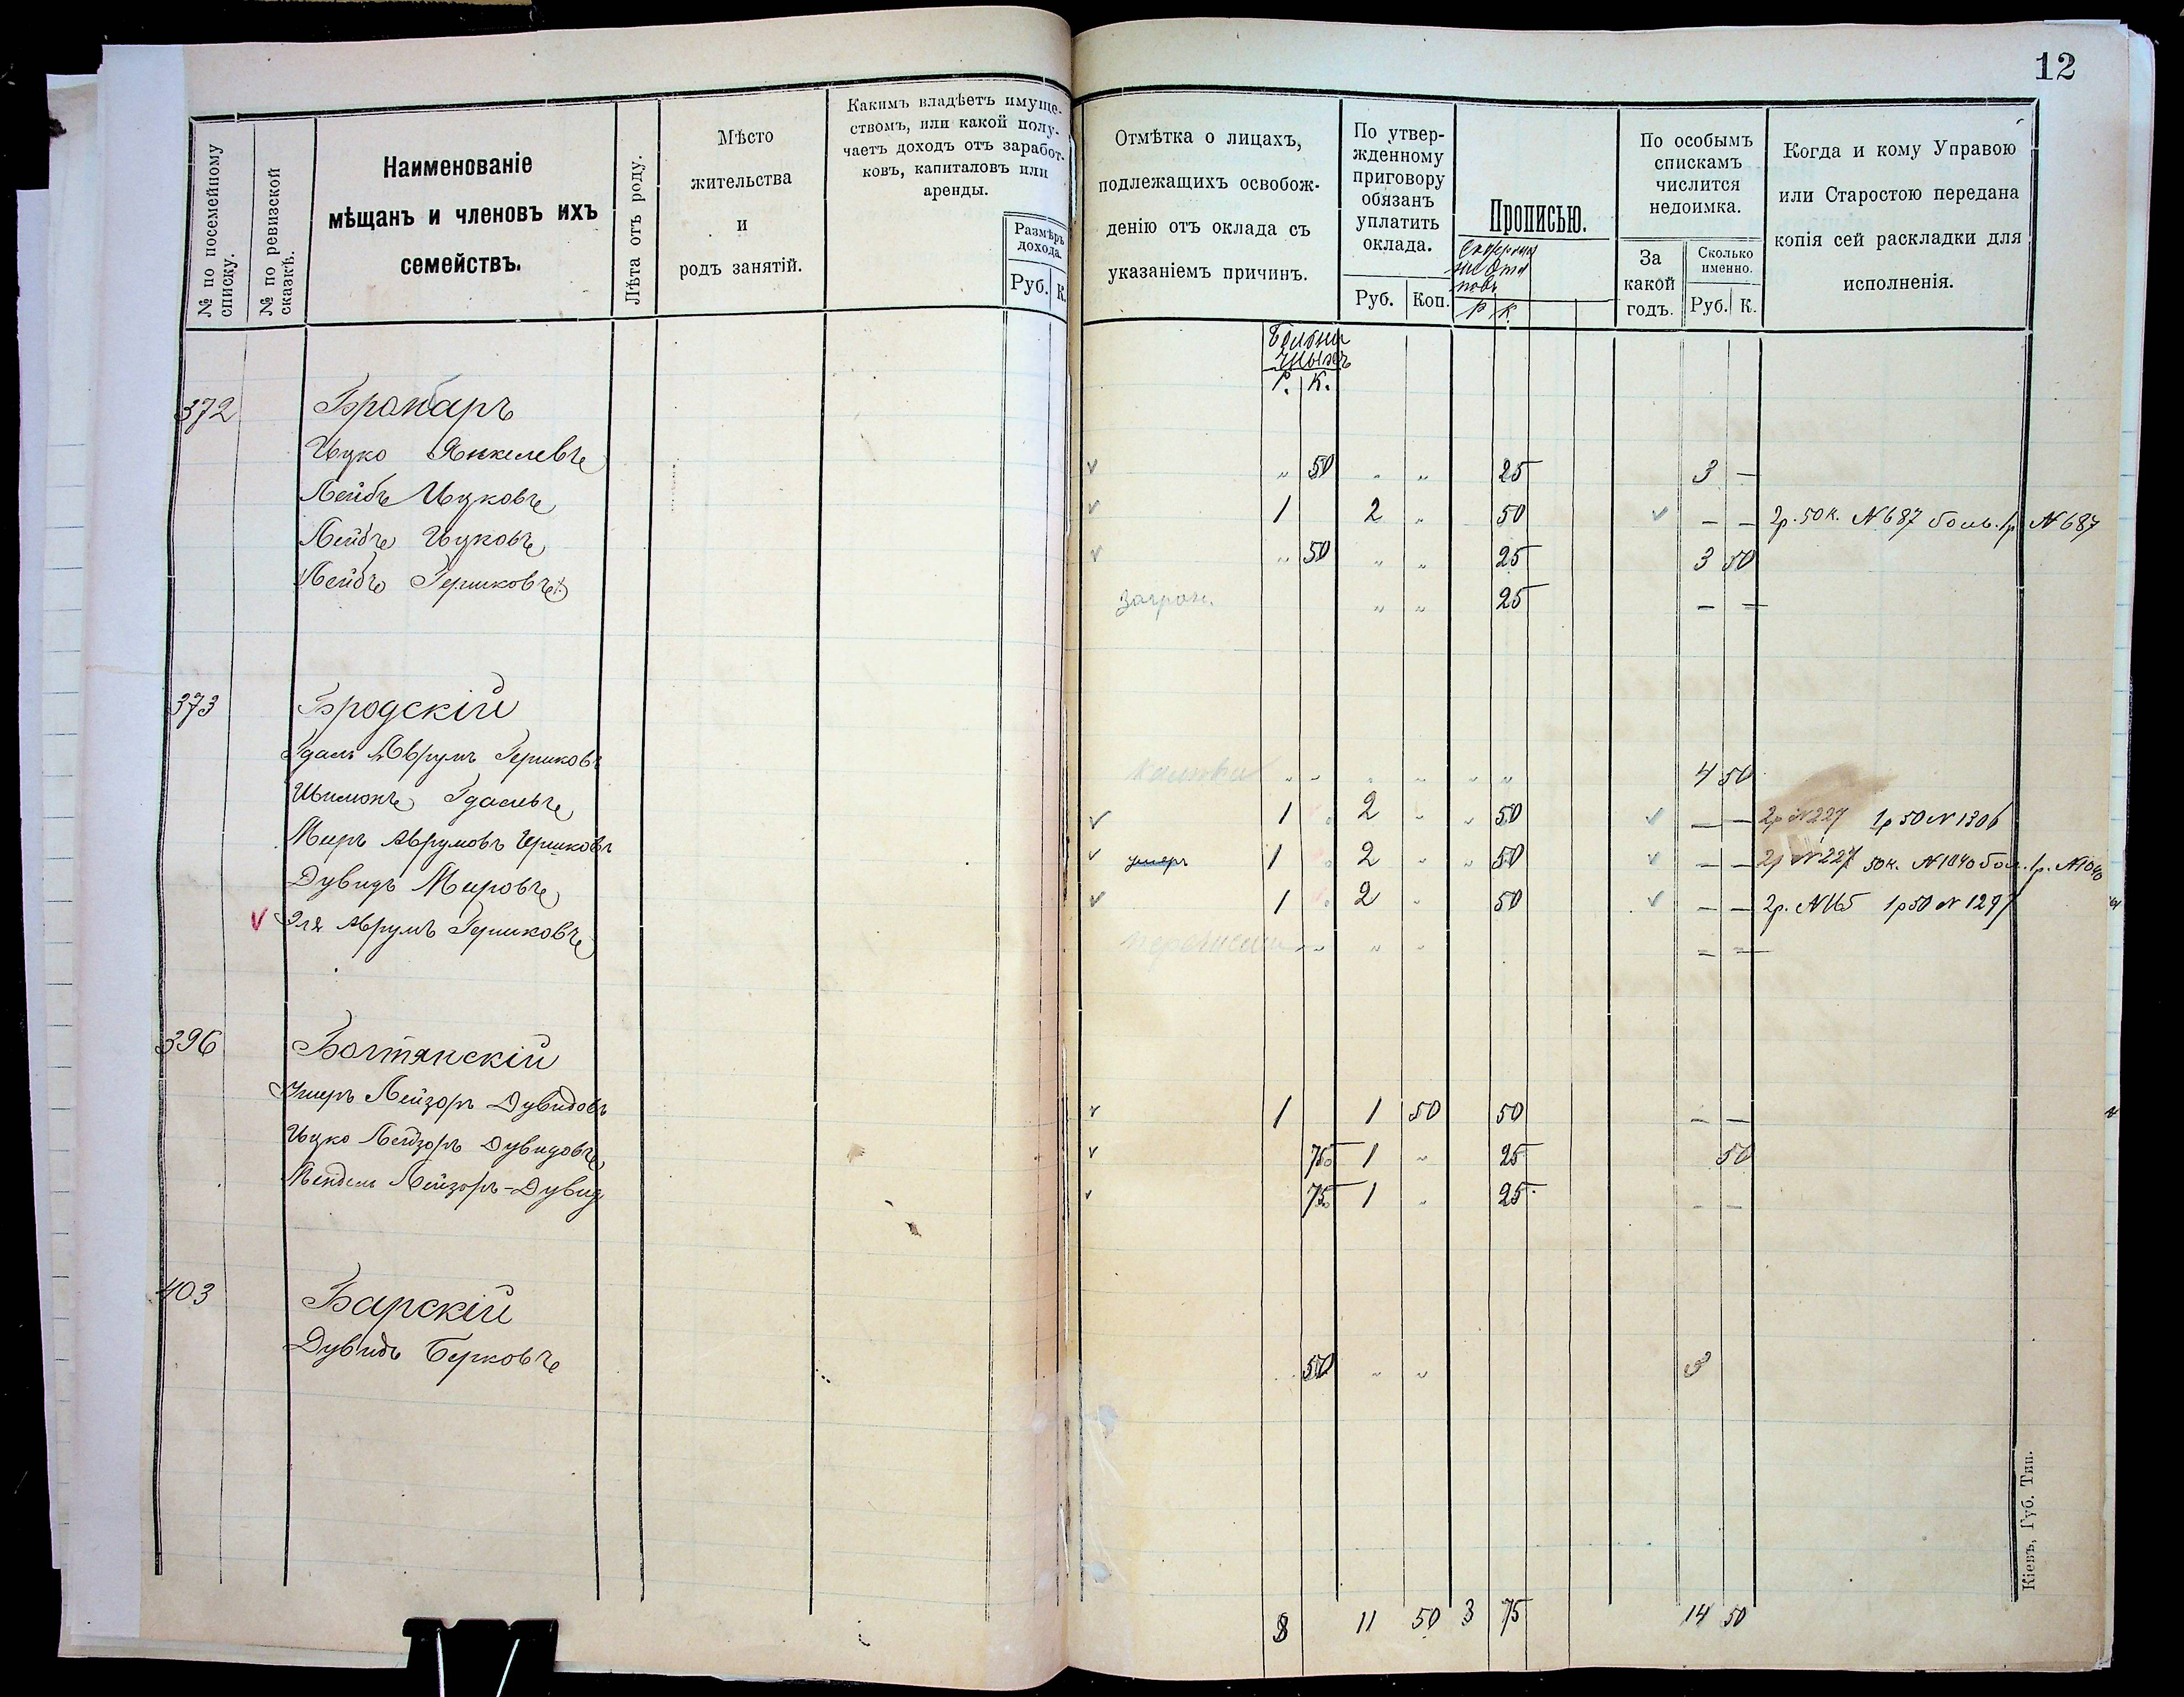 12
№ по посемейному списку.
№ по ревизской сказкѣ.
Наименованіе
мѣщанъ и членовъ ихъ
семействъ.
Лѣта отъ роду.
Мѣсто
жительства
и
родъ занятій.
Какимъ владѣетъ имуще-
ствомъ, или какой полу-
чаетъ доходъ отъ заработ-
ковъ, капиталовъ или
аренды.
Размѣръ
дохода.
Руб. К.
Отмѣтка о лицахъ,
подлежащихъ освобож-
денію отъ оклада съ
указаніемъ причинъ.
По утвер-
жденному
приговору
обязанъ
уплатить
оклада.
Руб. Коп.
Прописью.
Р К.
По особымъ
спискамъ
числится
недоимка.
За
какой
годъ.
Сколько
именно.
Руб. К.
Когда и кому Управою
или Старостою передана
копія сей раскладки для
исполненія.
Больни
чныхъ
Р. К.
372 Бронбаръ
Ицко Янкелевъ " 50 " " 25 3 —
Лейбъ Ицковъ 1 2 " 50 — — 2р. 50к. №687 боль. 1р №687
Лейбъ Ицковъ " 50 " " 25 3 50
Лейбъ Гершковъ загран. " " 25 — —
373 Бродскій
Гдаль Аврумъ Гершковъ " " " " " " 4 50
Шимонъ Гдалевъ 1 2 " " 50 — — 2р №227 1р 50 №1306
Меръ Аврумовъ Гершковъ умеръ 1 2 " " 50 — — 2р №227 50к. №1040 бол. 1р. №1040
Дувидъ Меровъ 1 2 " 50 — — 2р. №165 1р50 №1297
Эля Аврумъ Гершковъ " " " — —
396 Болтянскій
Ушеръ Лейзоръ Дувидовъ 1 1 50 50 — —
Ицко Лейзоръ Дувидовъ 75 1 " 25 50
Мендель Лейзоръ-Дувид 75 1 " 25 — —
403 Барскій
Дувидъ Берковъ 50 " " 3
8 11 50 3 75 14 50
Кіевъ, Губ. Тип.